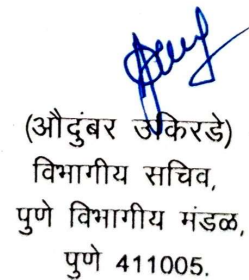 (औदुंबर उकिरडे)
विभागीय सचिव,
पुणे विभागीय मंडळ,
पुणे 411005.